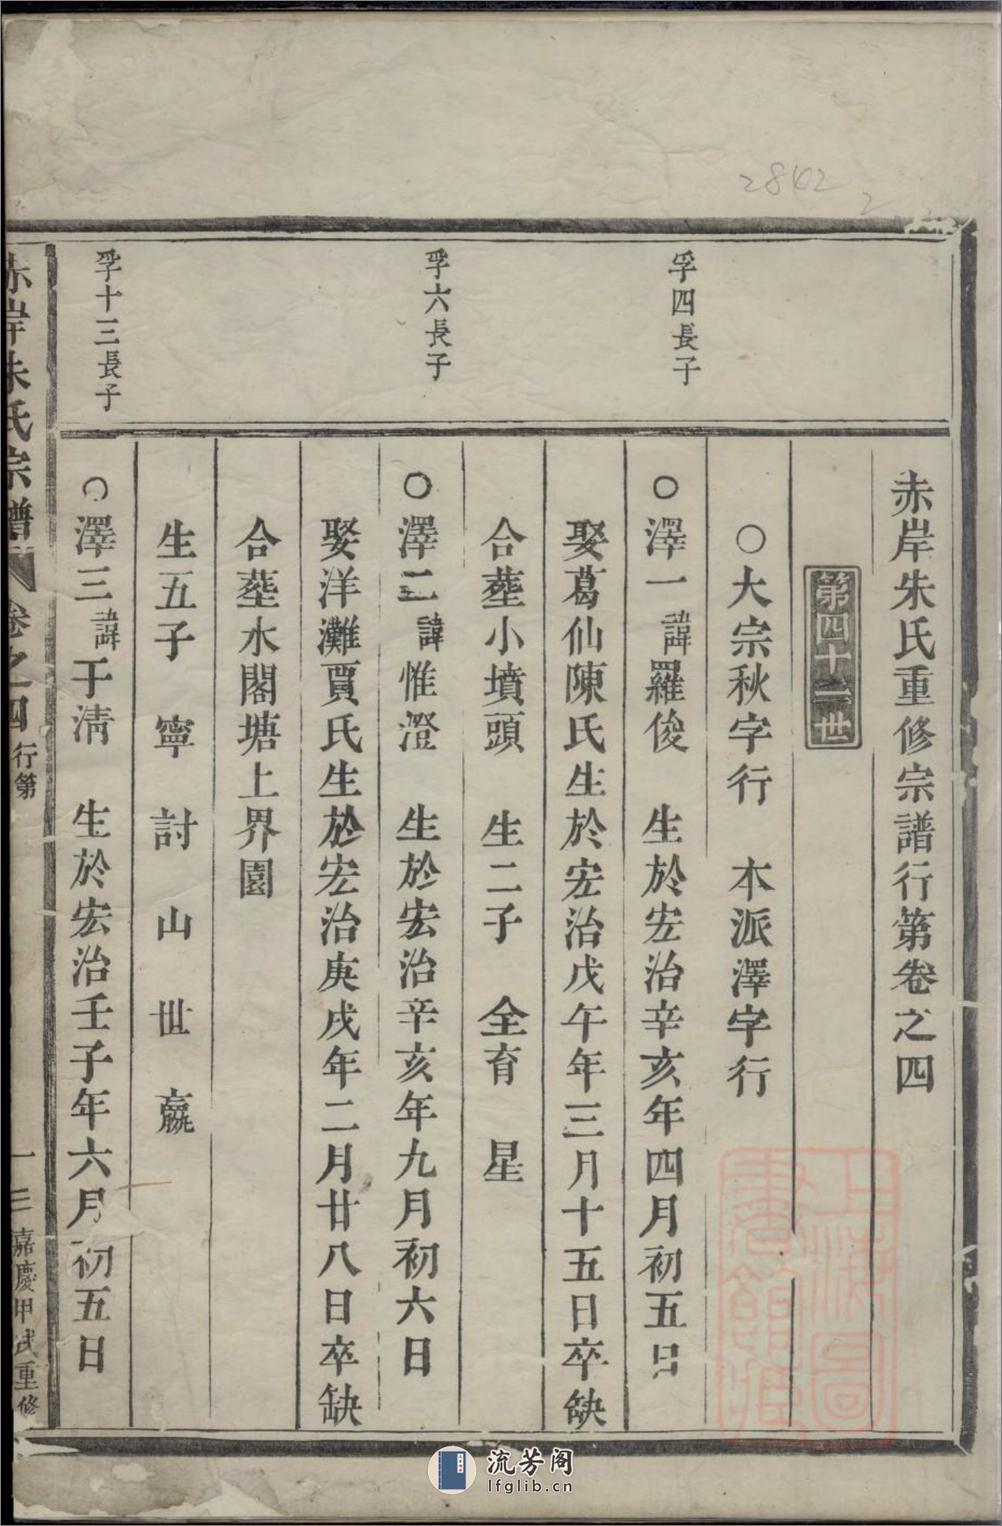 赤岸朱氏重修宗譜行第卷之四
第四十二世
○大宗秋字行 本派澤字行
孚四長子
○澤一諱羅俊 生於宏治辛亥年四月初五日
娶葛仙陳氏生於宏治戊午年三月十五日卒缺
合塟小墳頭 生二子 全育 星
孚六長子
○澤二諱惟澄 生於宏治辛亥年九月初六日
娶洋灘賈氏生於宏治庚戌年二月廿八日卒缺
合塟水閣塘上界園
生五子 寧 討 山 世 嬴
孚十三長子
○澤三諱于清 生於宏治壬子年六月初五日
赤岸朱氏宗譜 卷之四 行第 嘉慶甲戌重修
上海圖書館藏
2842
2
流芳阁
lfglib.cn